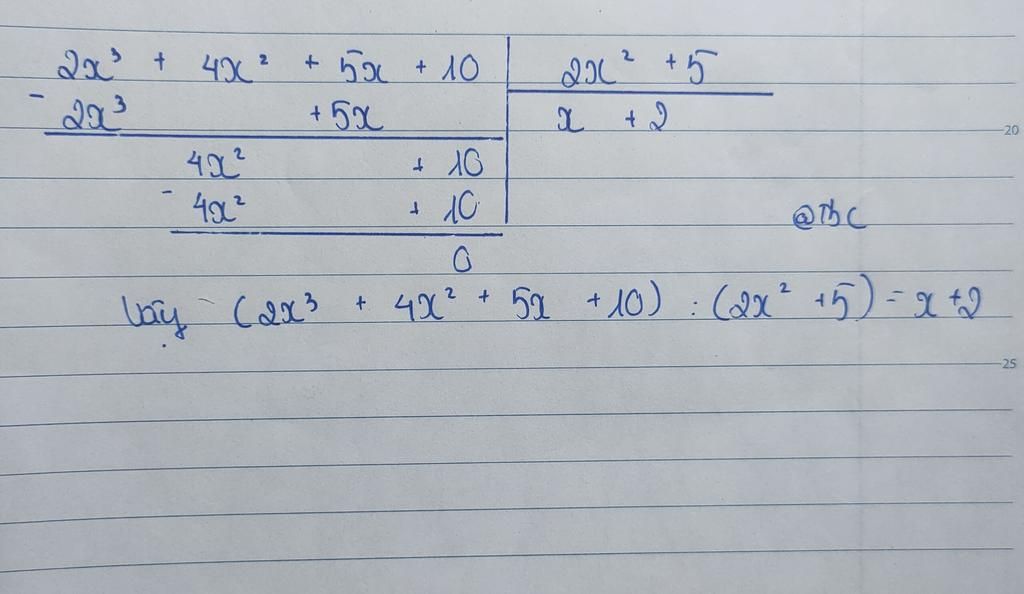 2x³ + 4x² + 5x + 10 | 2x² + 5
- 2x³ + 5x | x + 2
4x² + 10
- 4x² + 10
0
@TbC
Vậy (2x³ + 4x² + 5x + 10) : (2x² + 5) = x + 2
20
25